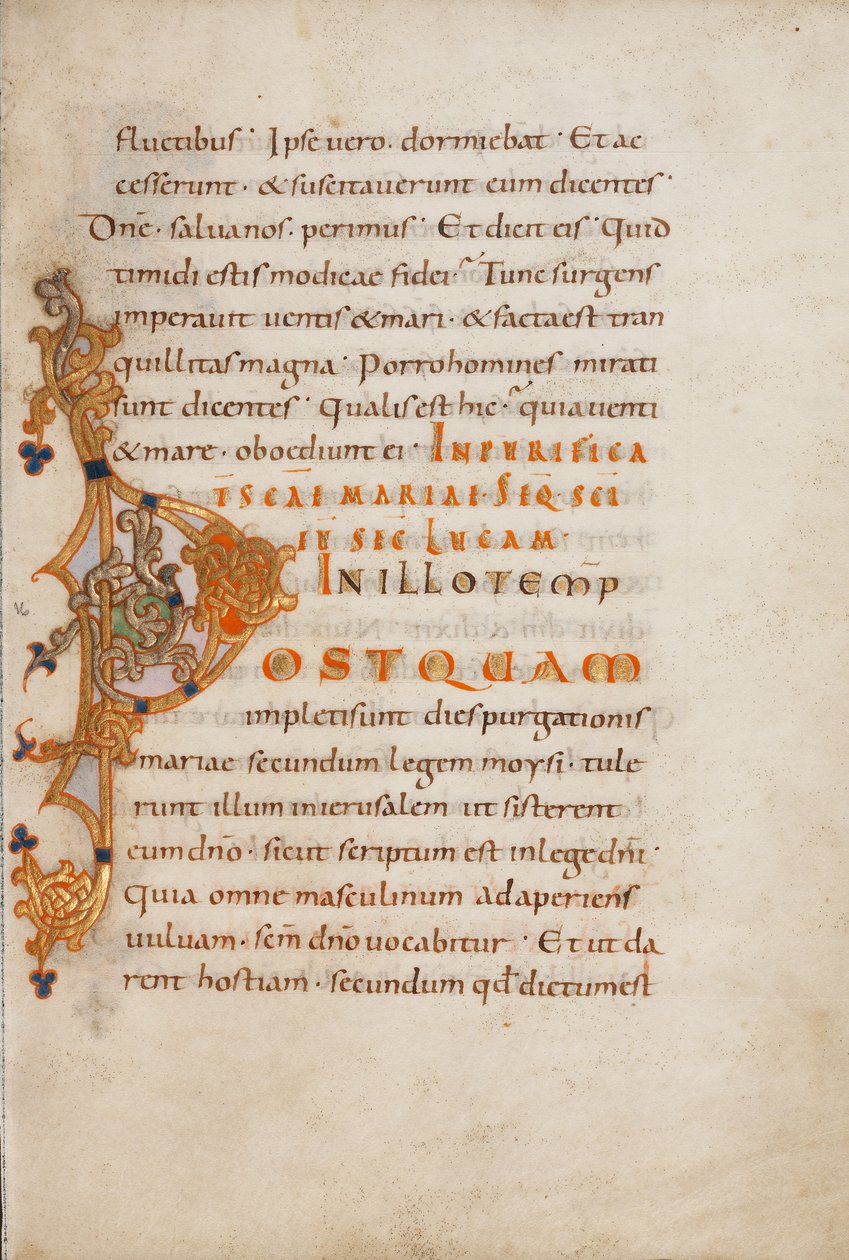 fluctibus· Ipse uero· dormiebat· Et ac
cesserunt· & suscitauerunt eum dicentes·
Dn̄e· saluanos· perimus· Et dicit eis· Quid
timidi estis modicae fidei· Tunc surgens
imperauit uentis & mari· & facta est tran
quillitas magna· Porro homines mirati
sunt dicentes· Qualis est hic· quia uenti
& mare· oboediunt ei· IN PURIFICA
T̄ S̄CAE MARIAE· SEQ̄· S̄CI
EŪ SEC̄ LUCAM·
IN ILLO TEM̄P
POSTQUAM
impleti sunt dies purgationis
mariae secundum legem moysi· tule
runt illum in ierusalem ut sisterent
eum dn̄o· sicut scriptum est in lege dn̄i·
Quia omne masculinum adaperiens
uuluam· sc̄m dn̄o uocabitur· Et ut da
rent hostiam· secundum qd̄ dictum est